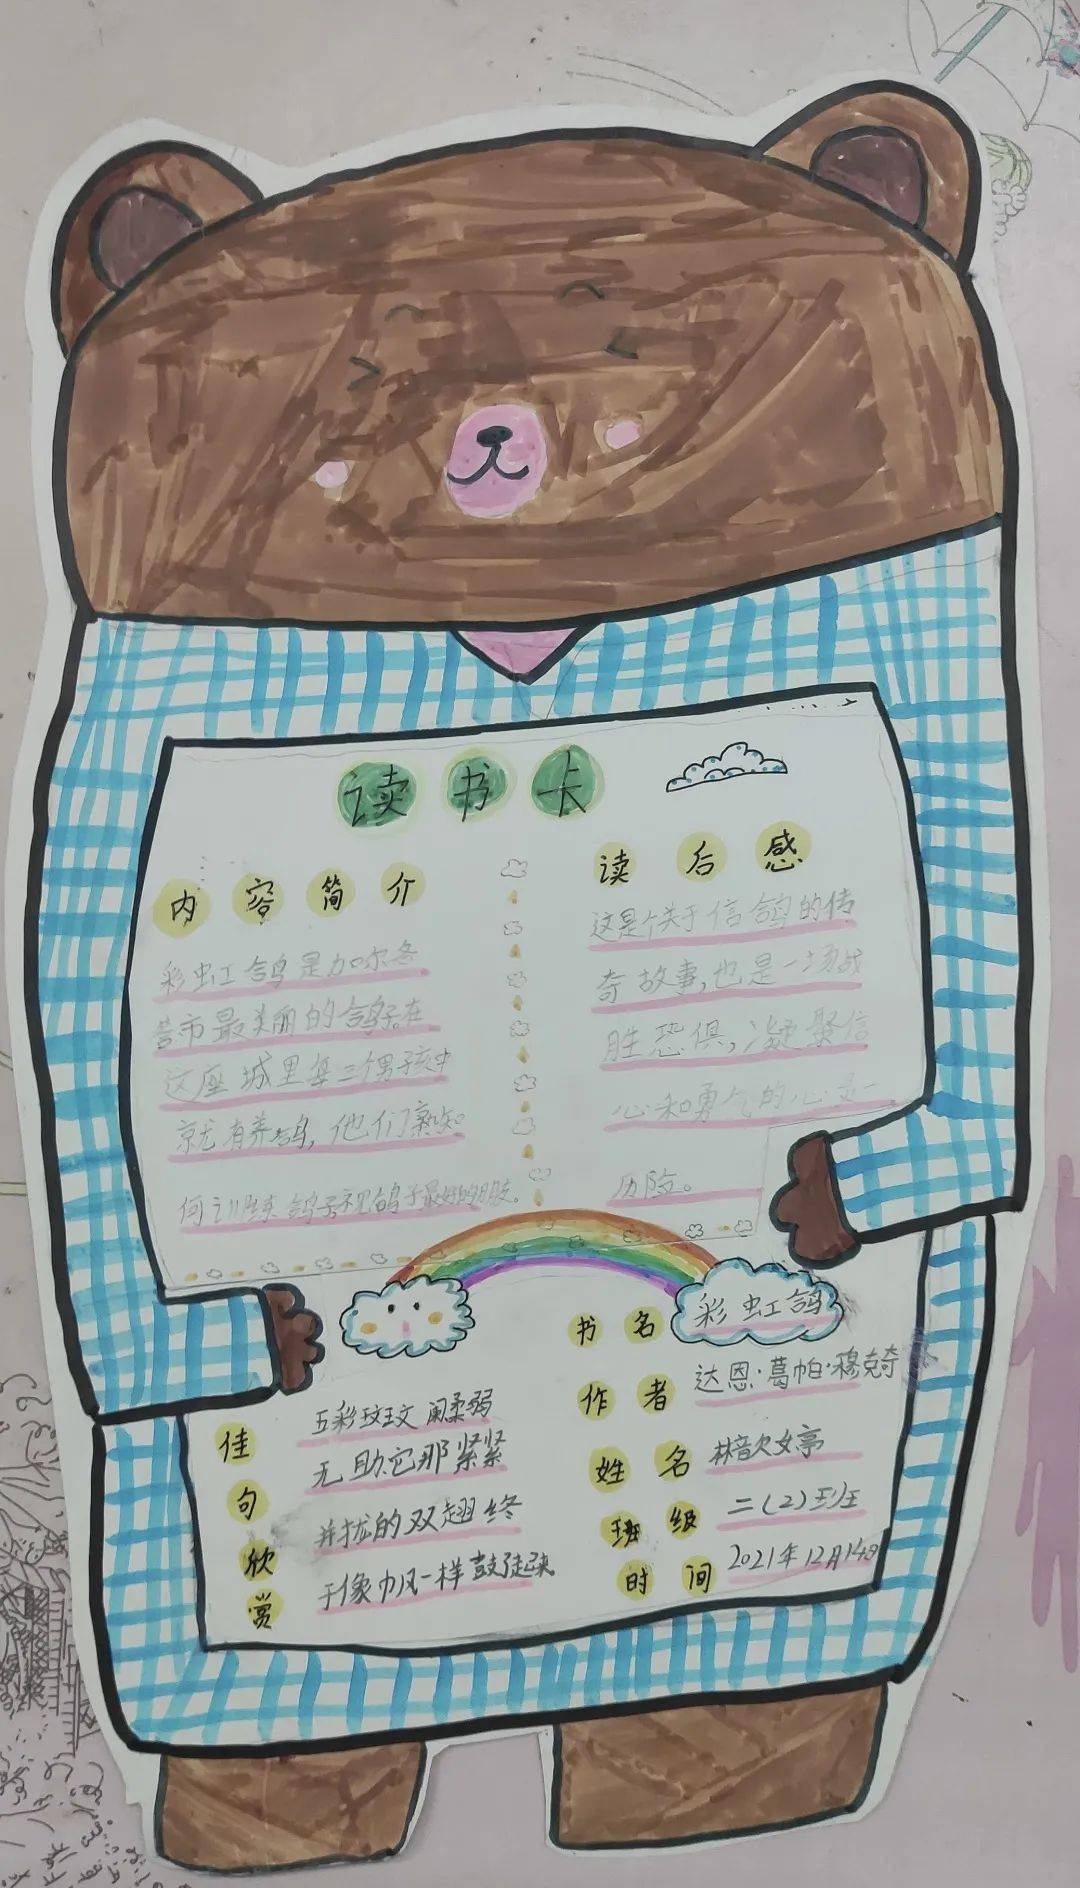 读书卡
内容简介
彩虹鸽是加尔各
答市最美丽的鸽子。在
这座城里每三个男孩中
就有养鸽，他们熟知
何训练鸽子和鸽子最好的朋友。
读后感
这是个关于信鸽的传
奇故事，也是一场战
胜恐俱，凝聚信
心和勇气的心灵
历险。
佳句欣赏
五彩玟玟 阑柔弱
无助它那紧紧
并拢的双翅终
于像巾风一样鼓
书名 彩虹鸽
作者 达恩·葛帕·穆克奇
姓名 林歆婷
班级 二（2）班
时间 2021年12月14日